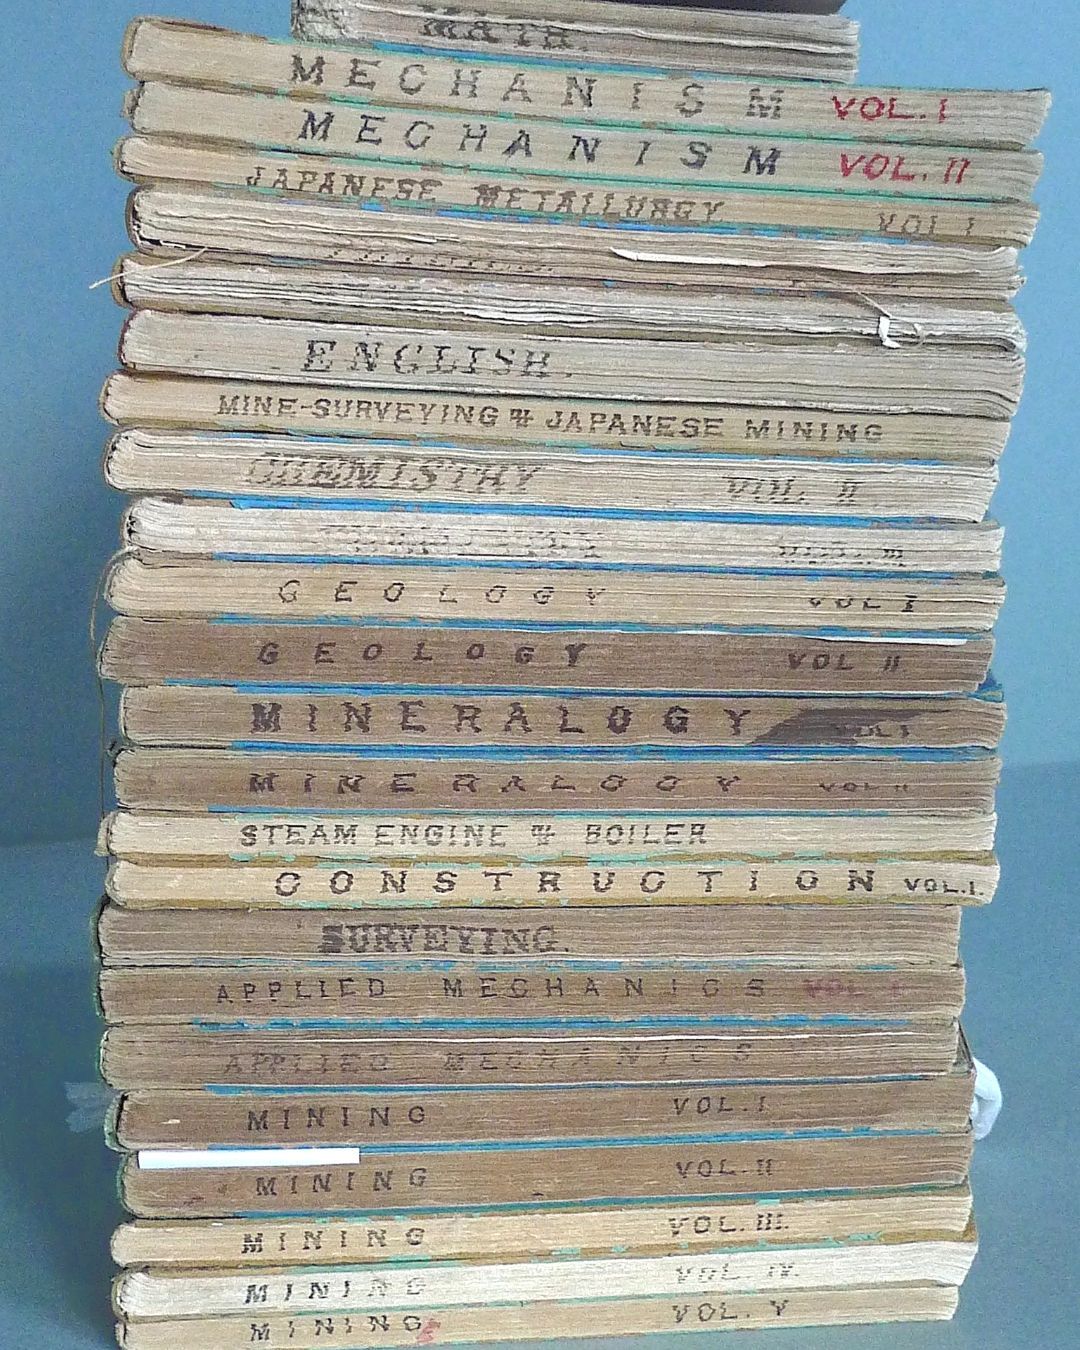 MATH.
MECHANISM VOL. I
MECHANISM VOL. II
JAPANESE METALLURGY VOL I
ENGLISH.
MINE-SURVEYING & JAPANESE MINING
CHEMISTRY VOL. II
VOL. III.
GEOLOGY VOL I
GEOLOGY VOL II
MINERALOGY VOL I
MINERALOGY VOL II
STEAM ENGINE & BOILER
CONSTRUCTION VOL.I.
SURVEYING.
APPLIED MECHANICS VOL I
APPLIED MECHANICS
MINING VOL. I
MINING VOL. II
MINING VOL. III.
MINING VOL. IV.
MINING VOL. V